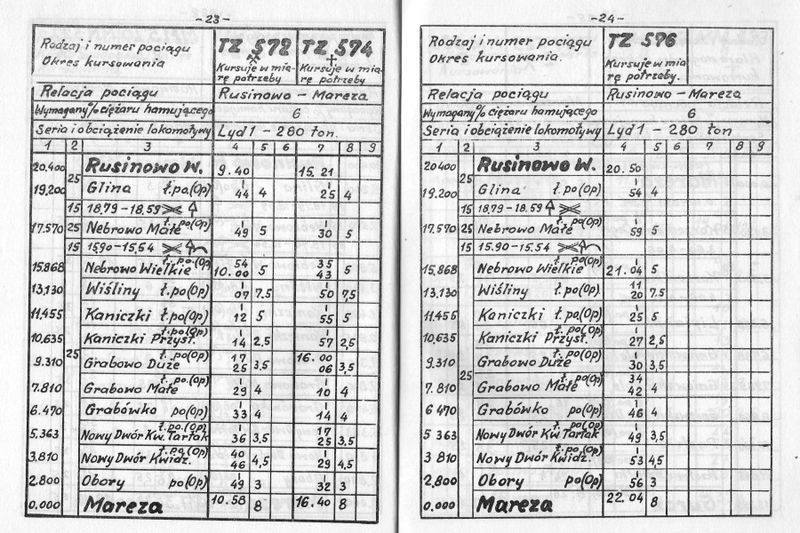 -23-
Rodzaj i numer pociągu TZ 572 TZ 574
Okres kursowania Kursuje w mia- Kursuje w mia-
rę potrzeby rę potrzeby
Relacja pociągu Rusinowo - Mareza
Wymagany % ciężaru hamującego 6
Seria i obciążenie lokomotywy Lyd1 - 280 ton.
1 2 3 4 5 6 7 8 9
20,400 Rusinowo W. 9.40 15.21
25
19,200 Glina ł.po.(Op) 44 4 25 4
15 18.79-18.59
17.570 25 Nebrowo Małe ł.po(Op) 49 5 30 5
15 15.90-15.54
15,868 Nebrowo Wielkie ł.po.(Op) 54 10.00 5 35 43 5
13,130 Wiśliny ł.po(Op) 07 7.5 50 7,5
11.455 Kaniczki ł.po(Op) 12 5 55 5
10,635 Kaniczki Przyst. ł.po(Op) 14 2,5 57 2,5
9.310 25 Grabowo Duże ł.po(Op) 17 25 3,5 16.00 06 3,5
7.810 Grabowo Małe ł.po.(Op) 29 4 10 4
6.470 Grabówko po(Op) 33 4 14 4
5,363 Nowy Dwór Kw. Tartak ł.po.(Op) 36 3,5 17 25 3,5
3,810 Nowy Dwór Kwidz. ł.po(Op) 40 46 4,5 29 4,5
2.800 Obory po(Op) 49 3 32 3
0.000 Mareza 10.58 8 16.40 8
-24-
Rodzaj i numer pociągu TZ 576
Okres kursowania. Kursuje w mia-
rę potrzeby.
Relacja pociągu Rusinowo - Mareza
Wymagany % ciężaru hamującego 6
Seria i obciążenie lokomotywy Lyd1 - 280 ton
1 2 3 4 5 6 7 8 9
20.400 Rusinowo W. 20.50
25
19.200 Glina ł po(Op) 54 4
15 18,79-18.59
17.570 25 Nebrowo Małe ł.po(Op) 59 5
15 15.90-15.54
15,868 Nebrowo Wielkie ł.po(Op) 21.04 5
13,130 Wiśliny ł.po(Op) 11 20 7.5
11.455 Kaniczki ł.po(Op) 25 5
10,635 Kaniczki Przyst. ł.po(Op) 27 2,5
9.310 Grabowo Duże ł.po(Op) 30 3,5
25
7.810 Grabowo Małe ł.po(Op) 34 42 4
6470 Grabówko po(Op) 46 4
5 363 Nowy Dwór Kw Tartak ł.po(Op) 49 3,5
3 810 Nowy Dwór Kwidz. ł.po(Op) 53 4,5
2,800 Obory po(Op) 56 3
0,000 Mareza 22.04 8